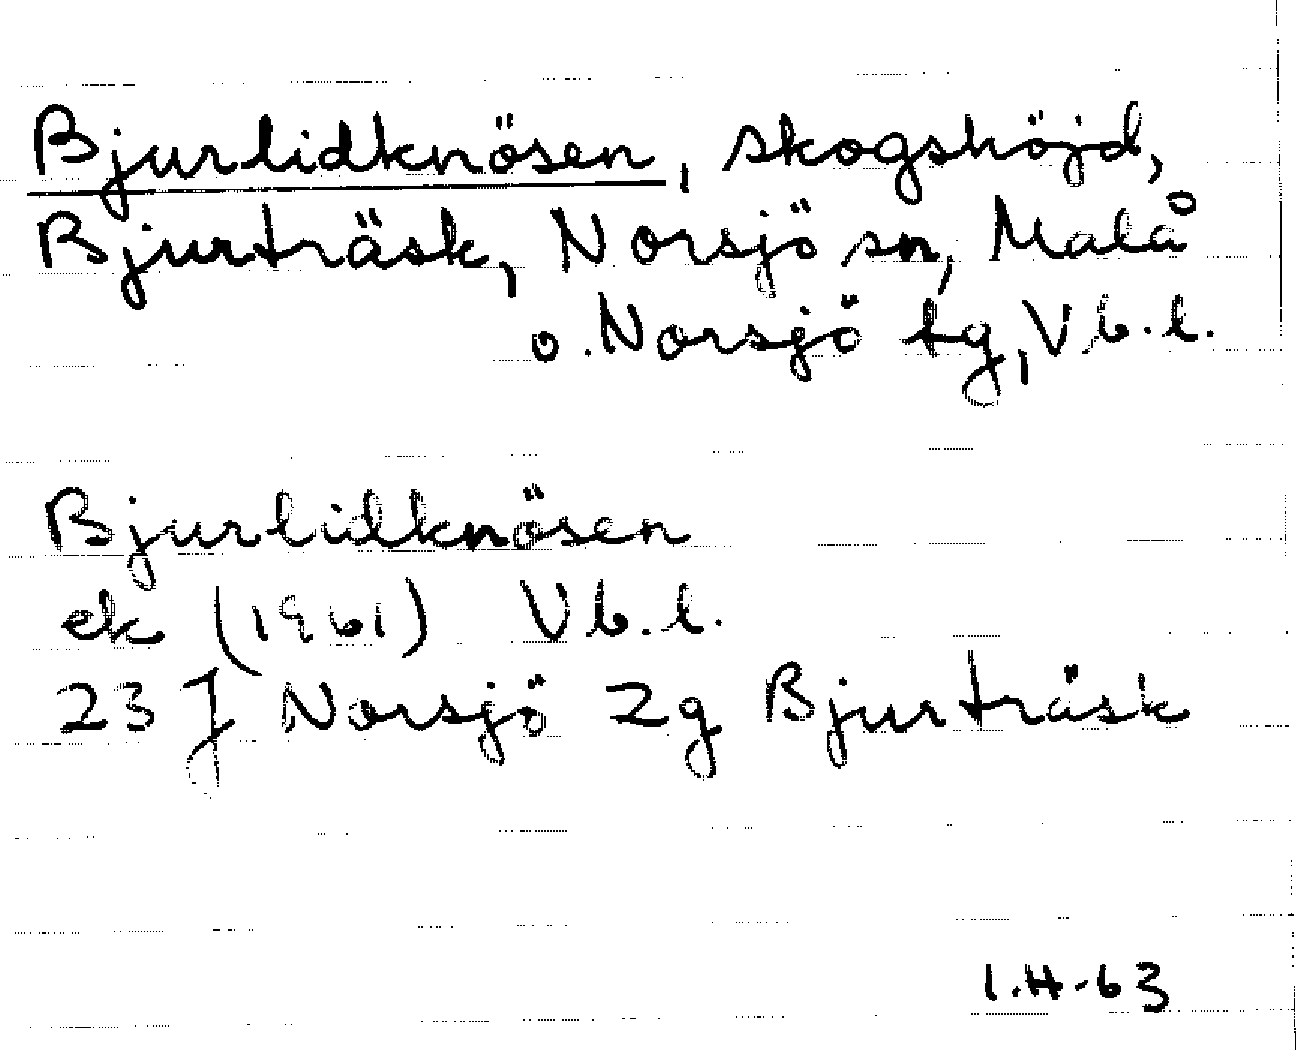 Bjurlidknösen, skogshöjd,
Bjurträsk, Norsjö sn, Malå
o. Norsjö tg, Vb.l.
Bjurlidknösen
ek (1961) Vb.l.
23 J Norsjö 2g Bjurträsk
I.H-63